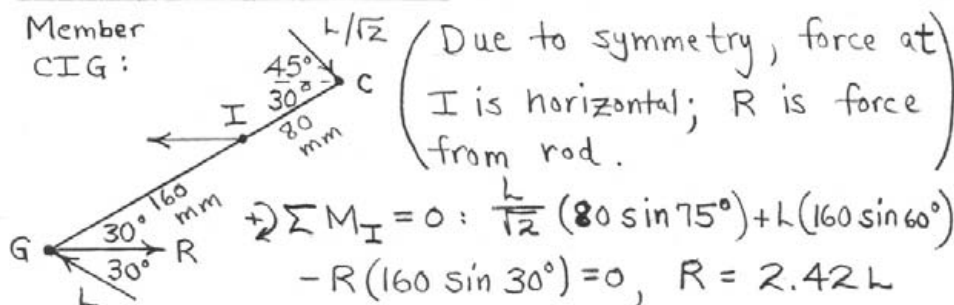 Member
CIG:
L/√2
45°
30°
C
I
80
mm
160
mm
G
30°
R
30°
L
(Due to symmetry, force at
I is horizontal; R is force
from rod.)
↷+ ΣM_I = 0: L/√2 (80 sin 75°) + L(160 sin 60°)
- R(160 sin 30°) = 0, R = 2.42L